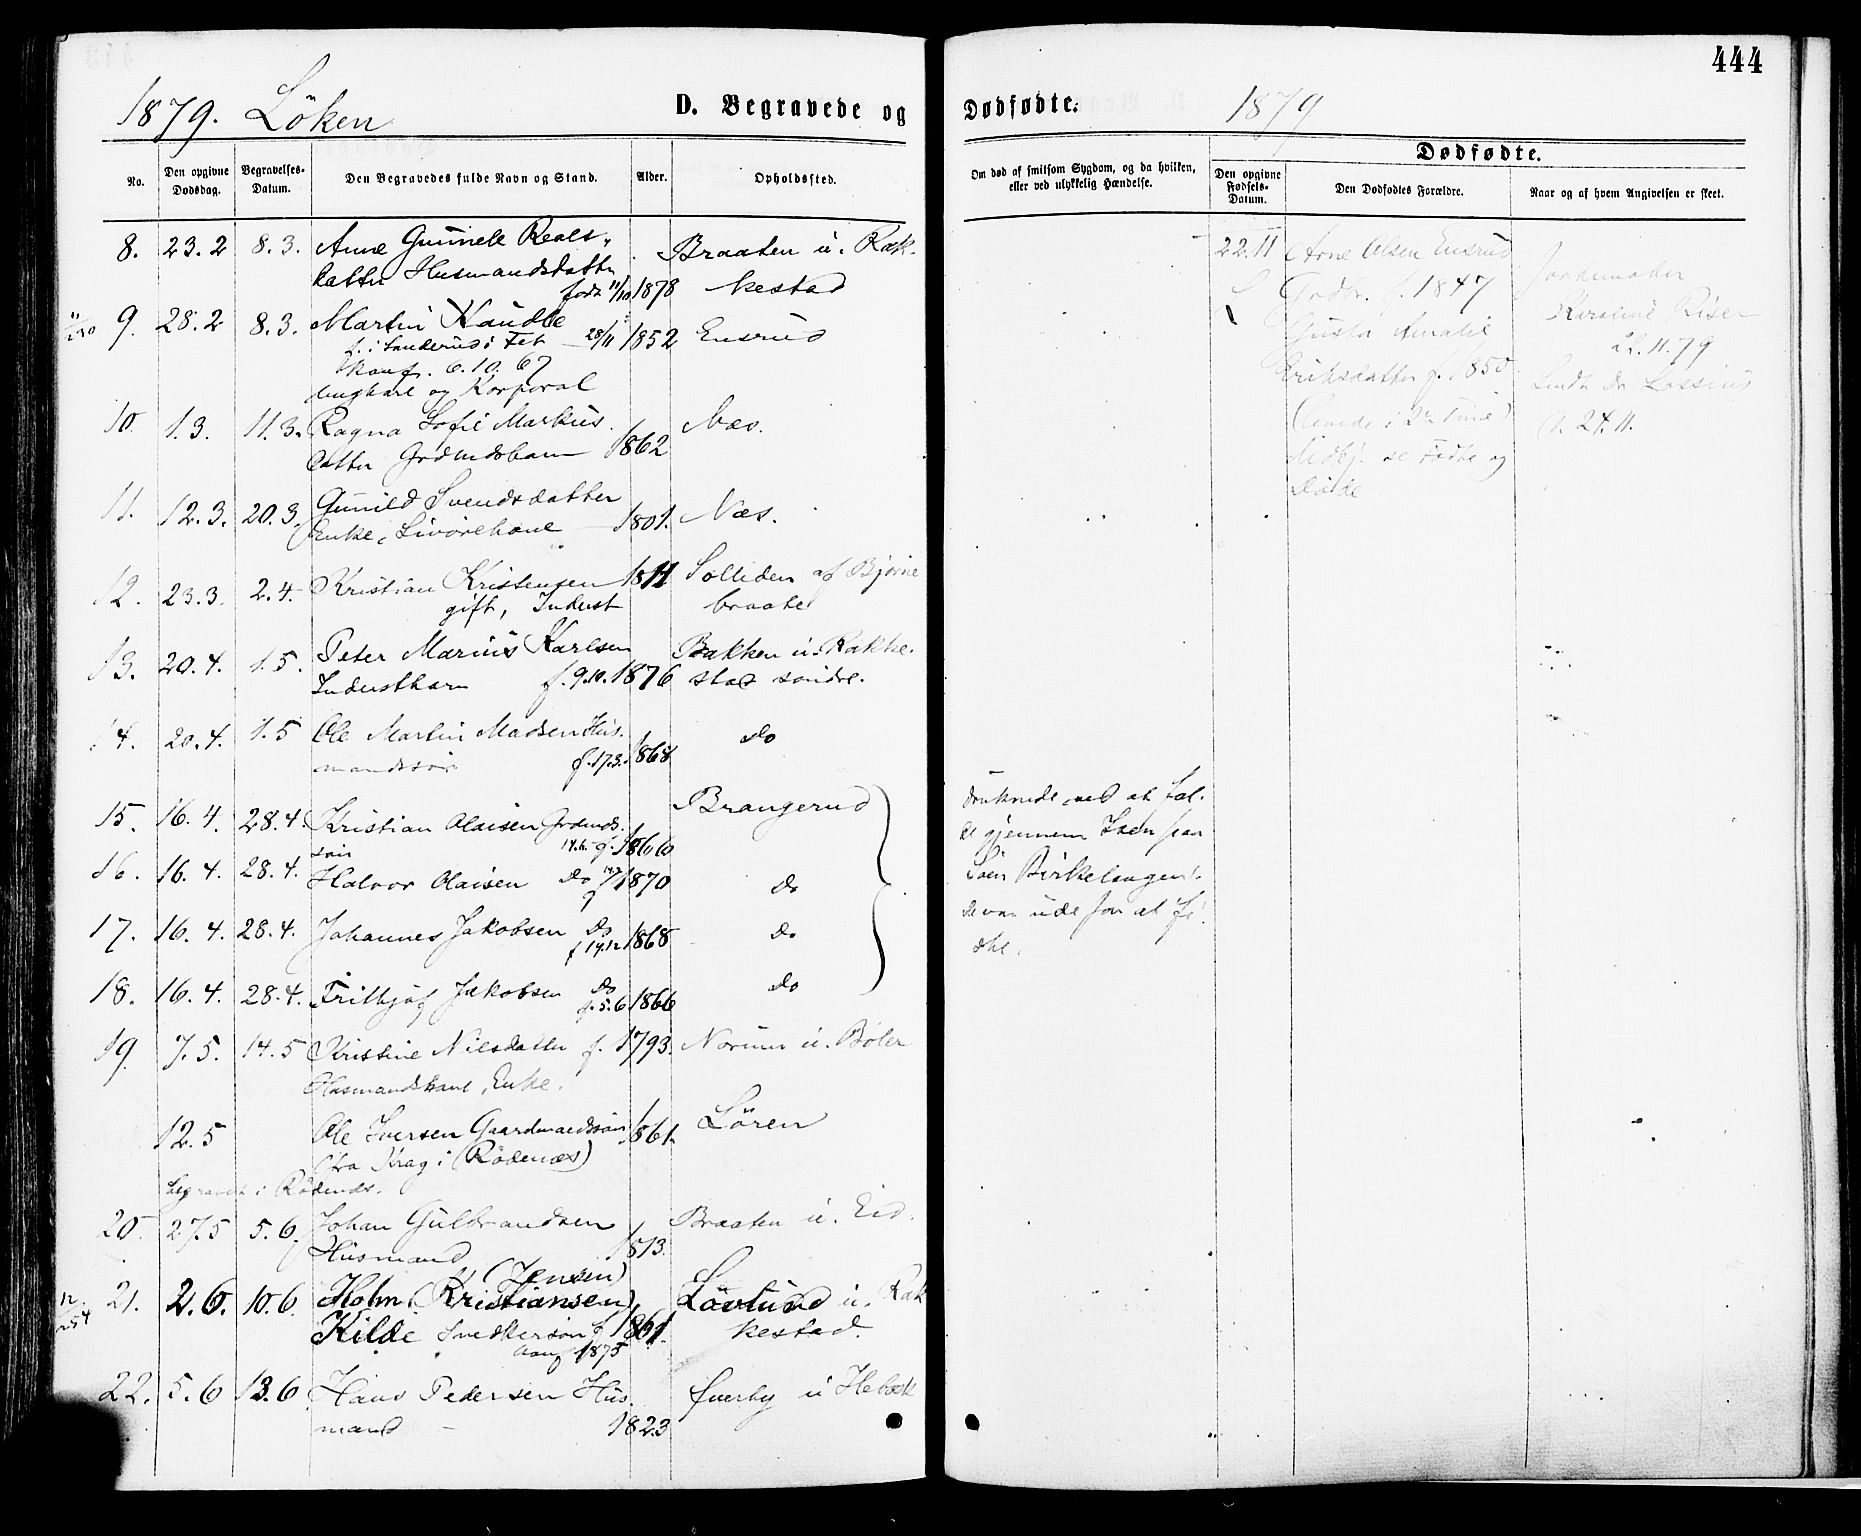 444
1879. Löken
D. Begravede og Dødfødte.
1879
No.
Den opgivne Dødsdag.
Begravelses-Datum.
Den Begravedes fulde Navn og Stand.
Alder.
Opholdssted.
Om død af smitsom Sygdom, og da hvilken, eller ved ulykkelig Hændelse.
Dødfødte.
Den opgivne Fødsels-Datum.
Den Dødfødtes Forældre.
Naar og af hvem Angivelsen er skeet.
8. 23.2 8.3. Anne Gunnele
datter Husmandsdatter Braaten u. Rak-
født 11/10 1878 kestad
9. 28.2 8.3. Martin
f. i Sanderud i Fet 28/11 1852 Ensrud
Konf. 6.10.67
ungkarl og Korporal
10. 1.3. 11.3. Ragna Sofie Markus- Næs.
datter 1862
11. 12.3. 20.3. Gunild Svendsdatter
Enke, 1801. Næs.
12. 23.3. 2.4. Kristian Kristensen 1811 Solliden af Bjørne
gift, Inderst braate
13. 20.4. 1.5. Peter Marius Karlsen Bakken u. Rakke-
Inderstbarn f. 9.10. 1876 stad søndre.
14. 20.4. 1.5 Ole Martin Madsen Hus- do
mandssøn f. 17.3. 1868
15. 16.4. 28.4. Kristian Olaisen Brangerud
søn 1866
16. 16.4. 28.4. Halvor Olaisen do 1870 do
17. 16.4. 28.4. Johannes Jakobsen do
f 14.12 1868 do
18. 16.4. 28.4. Frithjof Jakobsen do
f. 5.6 1866 do
19. 7.5. 14.5 Kristine Nilsdatter f. 1793. u. Bøler
Husmandskone, Enke.
12.5 Ole Iversen Gaardmandssøn 1861. Lören
fra Krag i (Rödenæs)
begravet i Rödenæs.
20. 27.5 5.6. Johan Gulbrandsen Braaten u. Eid.
Husmand 1813.
(Jensen)
21. 2.6. 10.6 Holm (Kristiansen) Lövlund u. Rak
Kilde f 1861. kestad.
1875
22. 5.6 13.6 Hans Pedersen Hus-
mand 1823
druknede ved at fal-
de gjennem Isen paa
Söen Birkelangen.
de var ude for at fi-
ske.
22.11 Arne Olsen Ensrud
Grdbr. f. 1847
Gusta Amalie
Eriksdatter f. 1850
(levede i 2de Time)
se Fødte og
Døde
Jordemoder
Karoline Riser
22.11.79
24.11.